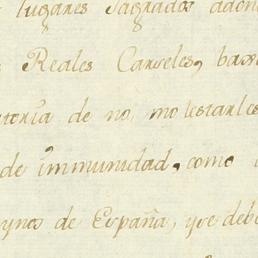 lugares Sagrados adon
Reales Carceles, bax
de no molestarles
de immunidad, como
de España, que deb